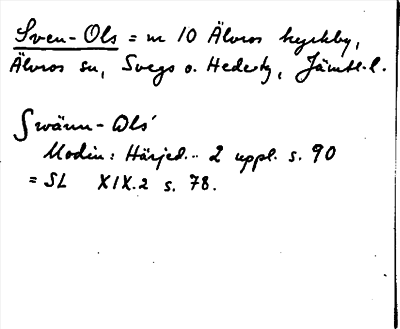 Sven-Ols = nr 10 Älvros kyrkby,
Älvros sn, Svegs o. Hedeby, Jämtl. l.
Swänn-Ols'
Modin: Härjed.. 2 uppl. s. 90
= SL XIX.2 s. 78.